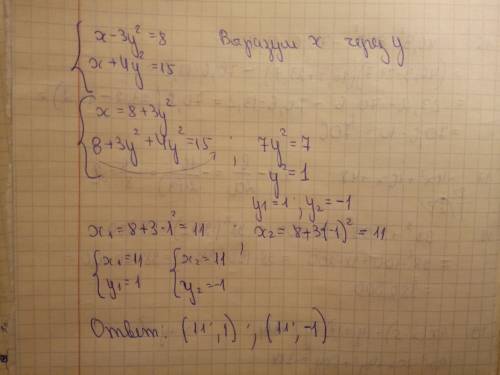 x-3y²=8 Выразим x через y
x+4y²=15
x=8+3y²
8+3y²+4y²=15; 7y²=7
y²=1
y1=1; y2=-1
x1=8+3·1²=11; x2=8+3(-1)²=11
x1=11 x2=11
y1=1 y2=-1
Ответ: (11; 1); (11; -1)